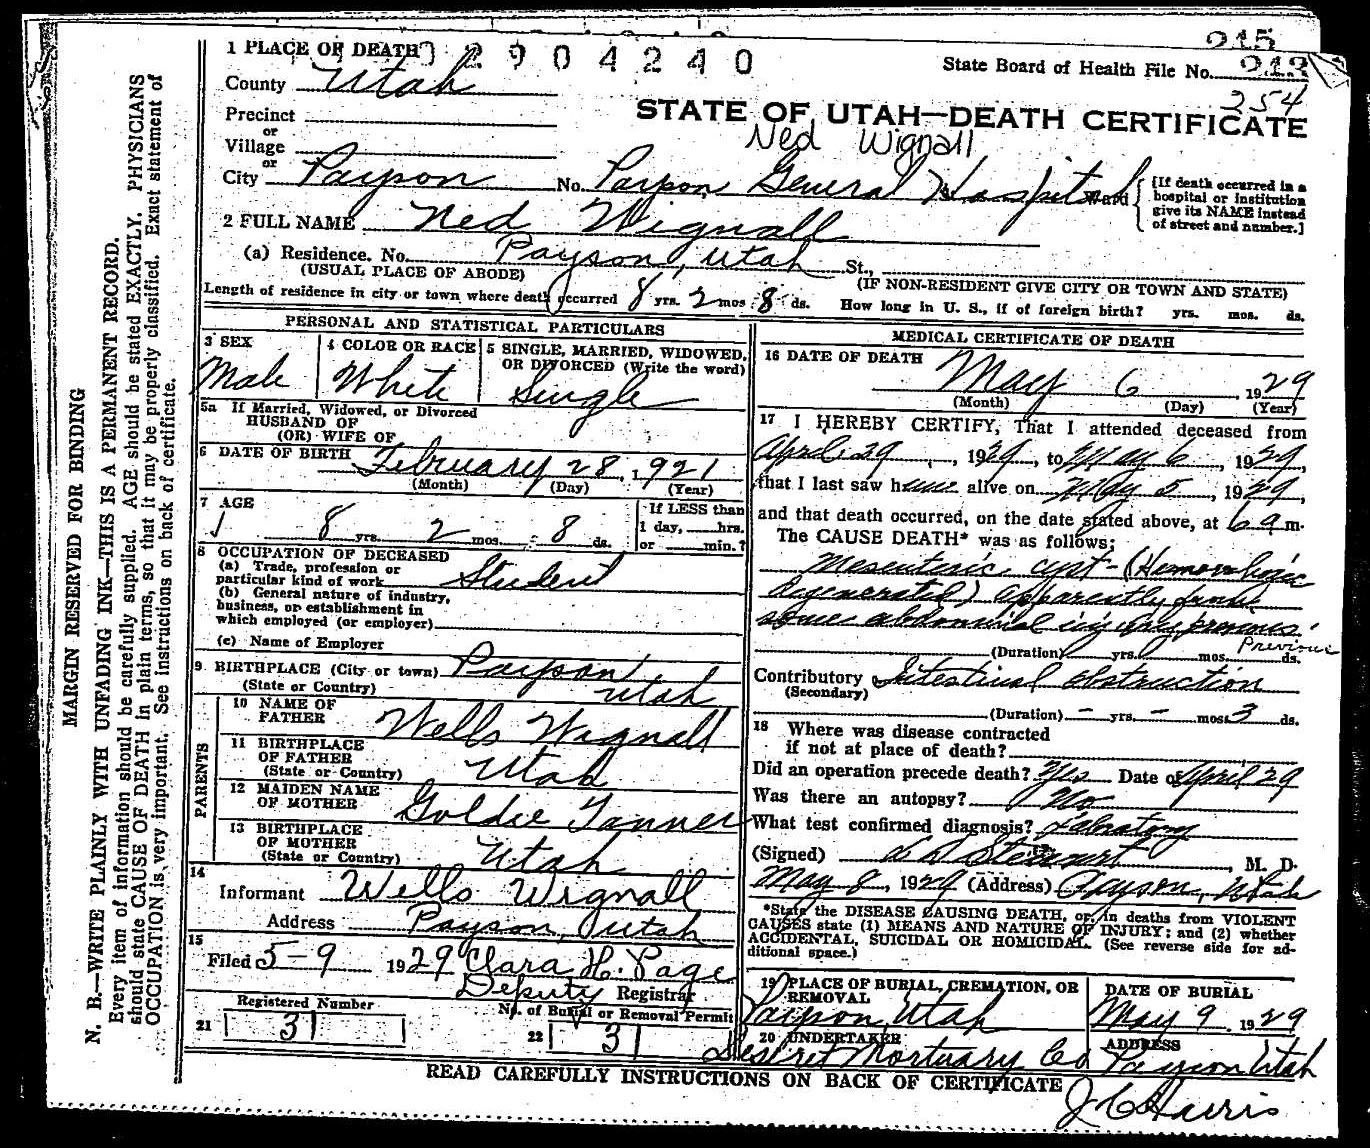 215
1 PLACE OF DEATH 2904240
State Board of Health File No. 213
254
County Utah
STATE OF UTAH—DEATH CERTIFICATE
Precinct
or
Village
or
Ned Wignall
City Payson No. Payson General Hospital Ward
[If death occurred in a hospital or institution give its NAME instead of street and number.]
2 FULL NAME Ned Wignall
(a) Residence. No. Payson, Utah St.,
(USUAL PLACE OF ABODE) (IF NON-RESIDENT GIVE CITY OR TOWN AND STATE)
Length of residence in city or town where death occurred 8 yrs. 2 mos 8 ds. How long in U. S., if of foreign birth? yrs. mos. ds.
PERSONAL AND STATISTICAL PARTICULARS
3 SEX
Male
4 COLOR OR RACE
White
5 SINGLE, MARRIED, WIDOWED, OR DIVORCED (Write the word)
Single
5a If Married, Widowed, or Divorced
HUSBAND OF
(OR) WIFE OF
6 DATE OF BIRTH February 28, 1921
(Month) (Day) (Year)
7 AGE
8 yrs. 2 mos. 8 ds.
If LESS than
1 day, hrs.
or min.?
8 OCCUPATION OF DECEASED
(a) Trade, profession or
particular kind of work Student
(b) General nature of industry,
business, or establishment in
which employed (or employer)
(c) Name of Employer
9. BIRTHPLACE (City or town) Payson,
(State or Country) Utah
PARENTS
10 NAME OF
FATHER Wells Wignall
11 BIRTHPLACE
OF FATHER
(State or Country) Utah
12 MAIDEN NAME
OF MOTHER Goldie Tanner
13 BIRTHPLACE
OF MOTHER
(State or Country) Utah
14
Informant Wells Wignall
Address Payson, Utah
15
Filed 5-9 1929 Clara H. Page
Deputy Registrar
Registered Number
21 31
No. of Burial or Removal Permit
22 31
MEDICAL CERTIFICATE OF DEATH
16 DATE OF DEATH May 6, 1929
(Month) (Day) (Year)
17 I HEREBY CERTIFY, That I attended deceased from
April 29, 1929, to May 6, 1929,
that I last saw h alive on May 5, 1929,
and that death occurred, on the date stated above, at 6 a m.
The CAUSE DEATH* was as follows:
Mesenteric cyst- (Hemorrhagic
degenerated) apparently from
some abdominal injury previous.
Previous
(Duration) yrs. mos. ds.
Contributory Intestinal obstruction
(Secondary)
(Duration) - yrs. - mos. 3 ds.
18 Where was disease contracted
if not at place of death?
Did an operation precede death? Yes Date of April 29
Was there an autopsy? No
What test confirmed diagnosis? Labratory
(Signed) L D Stewart, M. D.
May 8, 1929 (Address) Payson, Utah
*State the DISEASE CAUSING DEATH, or, in deaths from VIOLENT
CAUSES state (1) MEANS AND NATURE OF INJURY; and (2) whether
ACCIDENTAL, SUICIDAL OR HOMICIDAL. (See reverse side for ad-
ditional space.)
19 PLACE OF BURIAL, CREMATION, OR
REMOVAL
Payson, Utah
DATE OF BURIAL
May 9, 1929
20 UNDERTAKER
Deseret Mortuary Co
ADDRESS
Payson Utah
READ CAREFULLY INSTRUCTIONS ON BACK OF CERTIFICATE
J C Harris
MARGIN RESERVED FOR BINDING
N. B.—WRITE PLAINLY WITH UNFADING INK—THIS IS A PERMANENT RECORD.
Every item of information should be carefully supplied. AGE should be stated EXACTLY. PHYSICIANS
should state CAUSE OF DEATH in plain terms, so that it may be properly classified. Exact statement of
OCCUPATION is very important. See instructions on back of certificate.